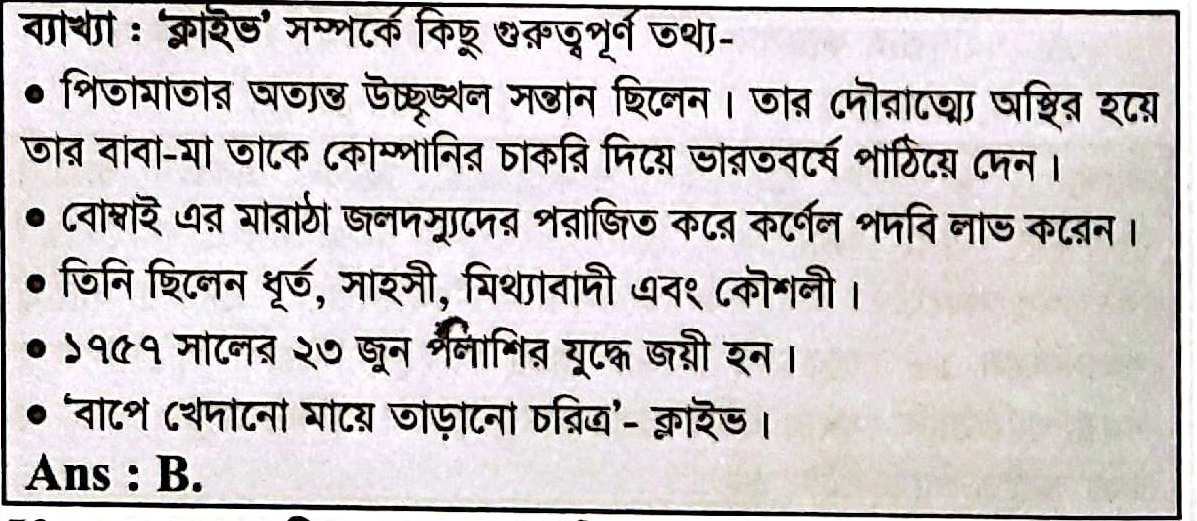 ব্যাখ্যা : ‘ক্লাইভ’ সম্পর্কে কিছু গুরুত্বপূর্ণ তথ্য-
• পিতামাতার অত্যন্ত উচ্ছৃঙ্খল সন্তান ছিলেন। তার দৌরাত্ম্যে অস্থির হয়ে
তার বাবা-মা তাকে কোম্পানির চাকরি দিয়ে ভারতবর্ষে পাঠিয়ে দেন।
• বোম্বাই এর মারাঠা জলদস্যুদের পরাজিত করে কর্ণেল পদবি লাভ করেন।
• তিনি ছিলেন ধূর্ত, সাহসী, মিথ্যাবাদী এবং কৌশলী।
• ১৭৫৭ সালের ২৩ জুন পলাশির যুদ্ধে জয়ী হন।
• ‘বাপে খেদানো মায়ে তাড়ানো চরিত্র’- ক্লাইভ।
Ans : B.